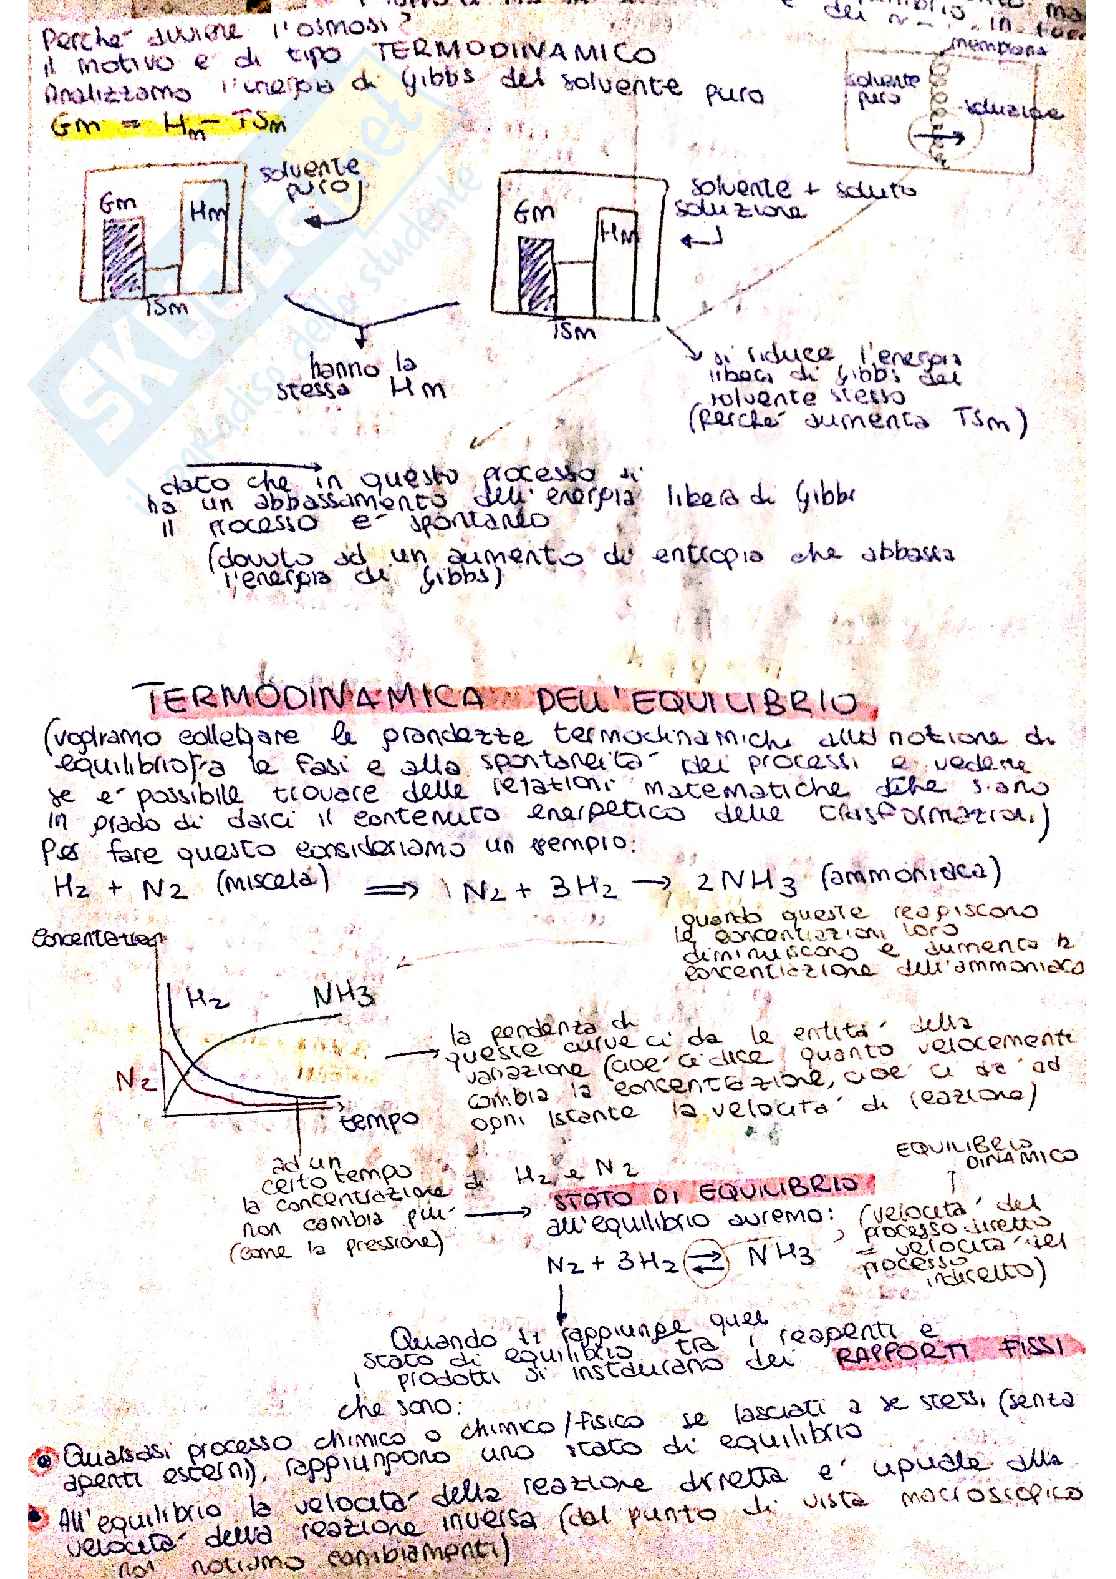 Perché avviene l'osmosi?
il motivo è di tipo TERMODINAMICO
Analizziamo l'energia di Gibbs del solvente puro
Gm = Hm - TSm
membrana
solvente puro
soluzione
solvente puro
Gm
Hm
TSm
solvente + soluto
soluzione
Gm
Hm
TSm
hanno la
stessa Hm
si riduce l'energia
libera di Gibbs del
solvente stesso
(perché aumenta TSm)
dato che in questo processo si
ha un abbassamento dell'energia libera di Gibbs
il processo è spontaneo
(dovuto ad un aumento di entropia che abbassa
l'energia di Gibbs)
SKUOLA.net
il paradiso dello studente
TERMODINAMICA DELL'EQUILIBRIO
(vogliamo collegare le grandezze termodinamiche alla nozione di
equilibrio fra le fasi e alla spontaneità dei processi e vedere
se è possibile trovare delle relazioni matematiche che siano
in grado di darci il contenuto energetico delle trasformazioni)
Per fare questo consideriamo un esempio:
H2 + N2 (miscela) ⟹ 1 N2 + 3H2 → 2NH3 (ammoniaca)
quando queste reagiscono
le concentrazioni loro
diminuiscono e aumenta la
concentrazione dell'ammoniaca
concentrazioni
H2
NH3
N2
tempo
la pendenza di
queste curve ci da le entità della
variazione (cioè ci dice quanto velocemente
cambia la concentrazione, cioè ci dà ad
ogni istante la velocità di reazione)
ad un
certo tempo
la concentrazione di H2 e N2
non cambia più
(come la pressione)
EQUILIBRIO
DINAMICO
STATO DI EQUILIBRIO
all'equilibrio avremo: (velocità del
processo diretto
= velocità del
processo
indiretto)
N2 + 3H2 ⇄ NH3
Quando si raggiunge quel
stato di equilibrio tra i reagenti e
i prodotti si instaurano dei RAPPORTI FISSI
che sono:
Qualsiasi processo chimico o chimico/fisico se lasciati a se stessi (senza
agenti esterni), raggiungono uno stato di equilibrio
All'equilibrio la velocità della reazione diretta è uguale alla
velocità della reazione inversa (dal punto di vista macroscopico
non notiamo cambiamenti)